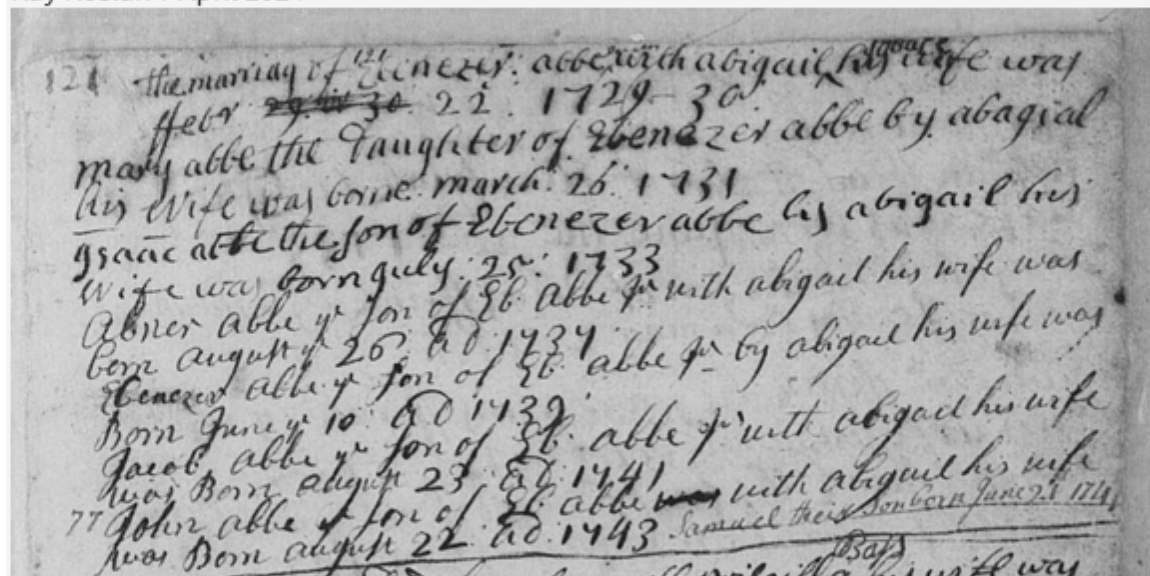 121 the marriag of Ebenezer abbe with abigail his wife was
ffebr 29 30 22 1729-30
mary abbe the Daughter of Ebenezer abbe by abagial
his Wife was borne march 26 1731
Isaac abbe the son of Ebenezer abbe by abigail his
Wife was born July 25 1733
Abner abbe ye son of Eb. abbe Jr with abigail his wife was
born august ye 26 AD 1737
Ebenezer abbe ye son of Eb. abbe Jr by abigail his wife was
Born June ye 10 AD 1739
Jacob abbe ye son of Eb. abbe Jr with abigael his wife
was Born august 23 AD 1741
77 John abbe ye son of Eb. abbe was with abigail his wife
was Born august 22 AD 1743 Samuel their Son born June 28